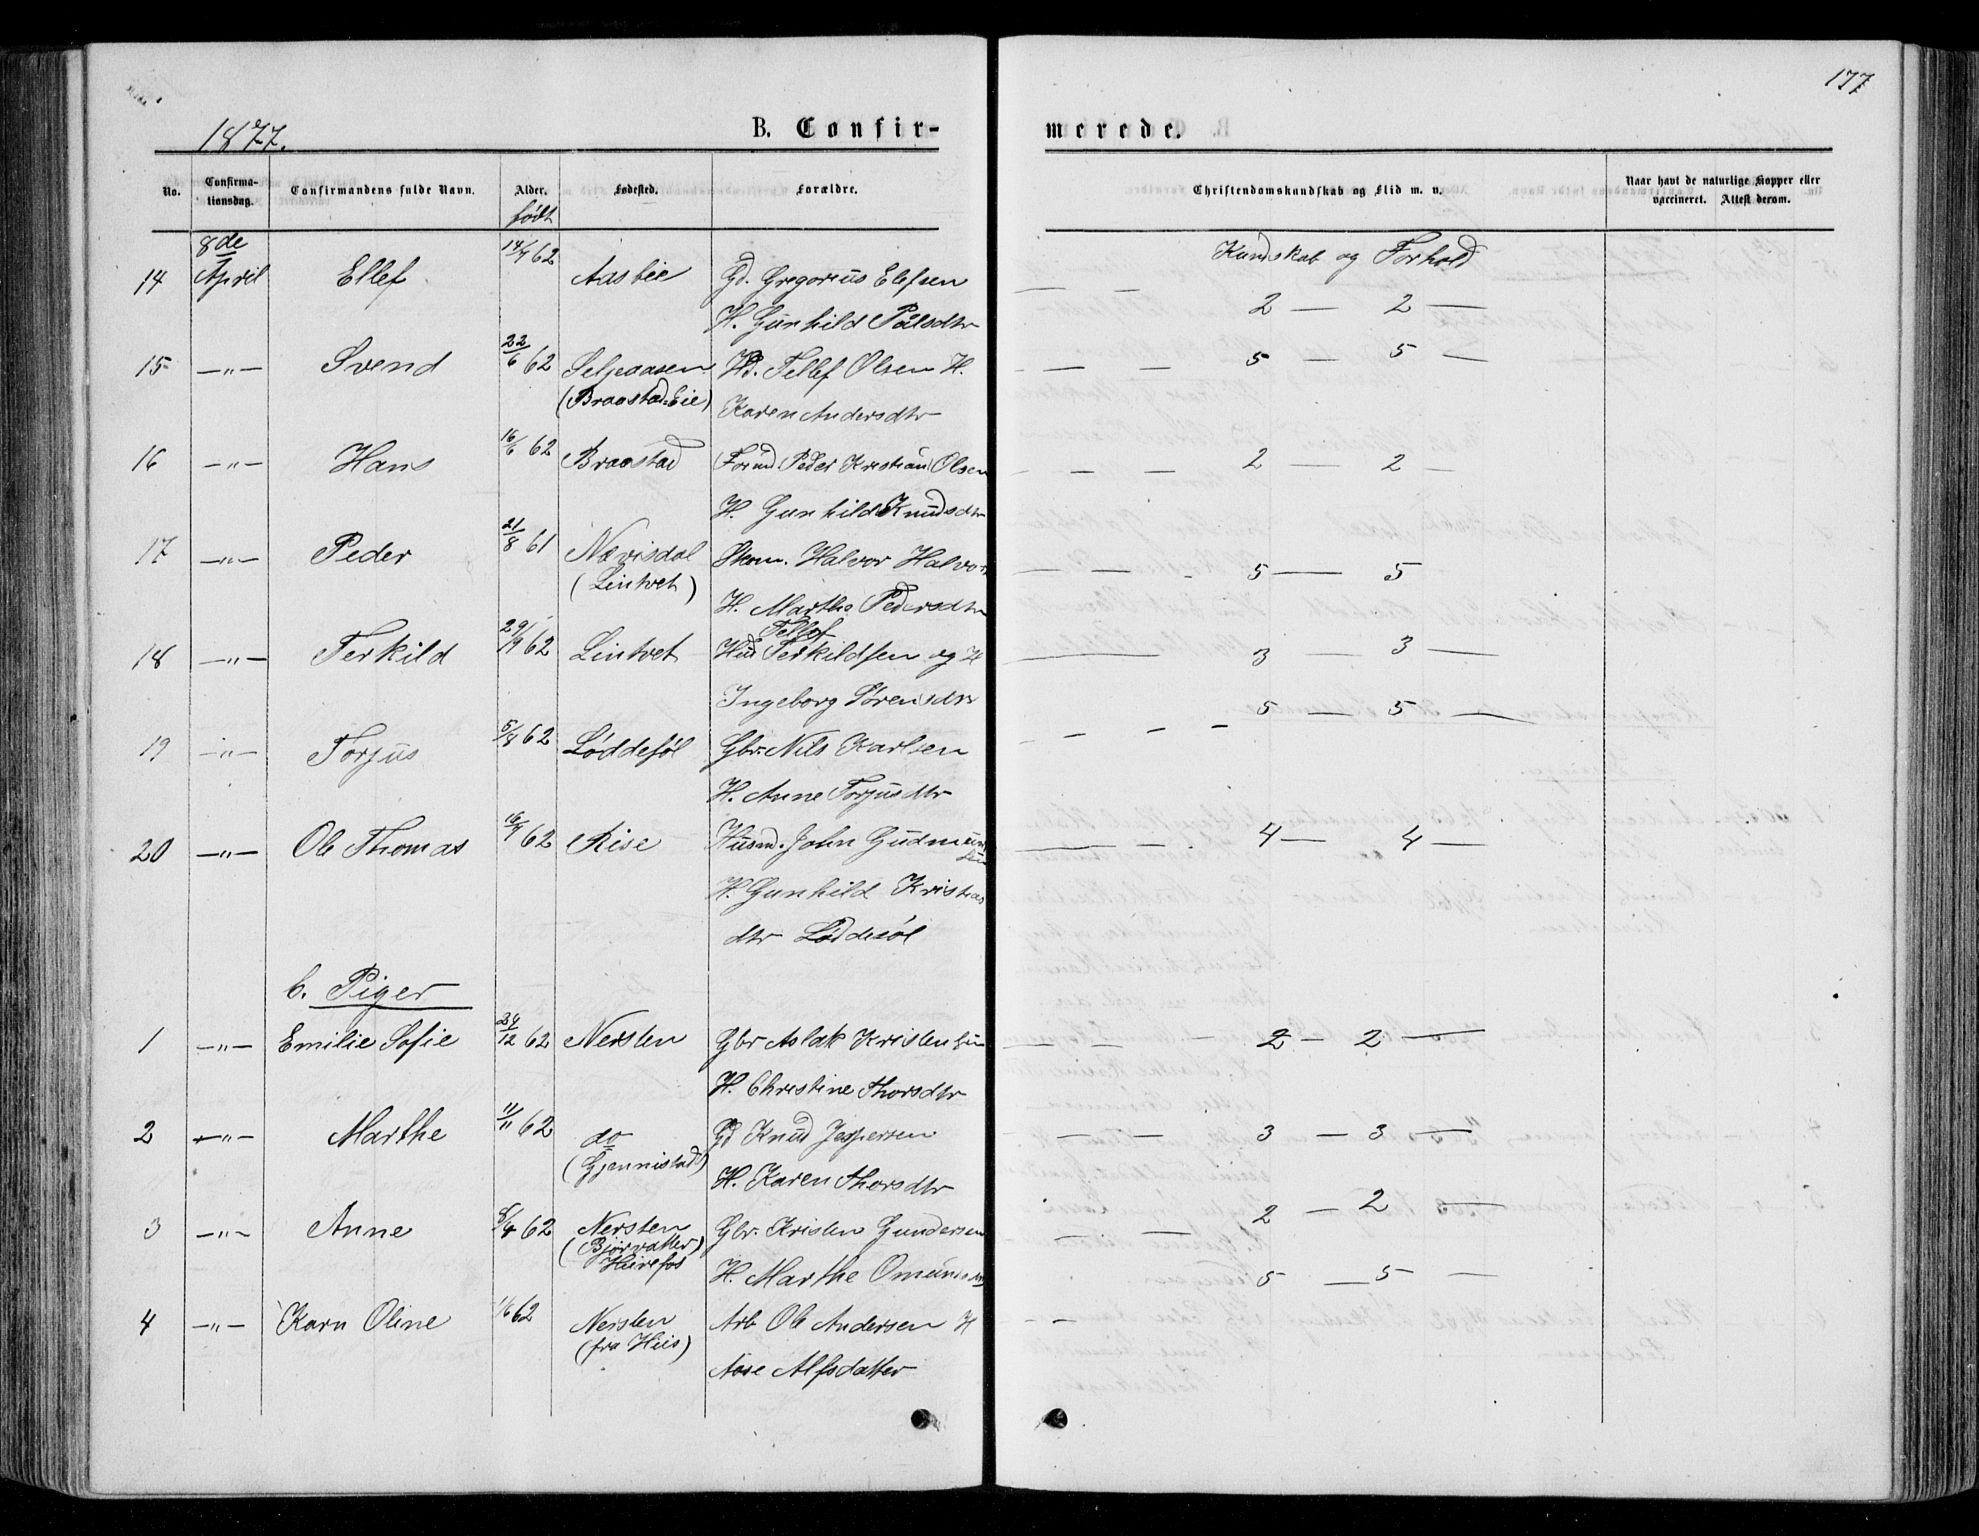 177
1877.
B. Confir-
merede.
No.
Confirma-
tionsdag.
Confirmandens fulde Navn.
Alder.
født
Fødested.
Forældre.
Christendomskundskab og Flid m. v.
Naar havt de naturlige Kopper eller
vaccineret. Attest derom.
Kundskab og Forhold
14 8de April Ellef 62 Aasbie Gd. Gregorius Elefsen
H. Gunhild Pålsdtr 2 — 2 —
15 —"— Svend 22/6 62 Seljeaasen Hd. Tellef Olsen H. 5 — 5 —
(Braastad-Eie) Karen Andersdtr
16 —"— Hans 16/6 62 Braastad Peder Kristian Olsen 2 — 2 —
H. Gunhild Knudsdtr
17 —"— Peder 21/8 61 Nævisdal Halvor 5 — 5
(Lintvet) H. Marthe Pedersdtr
Tellef
18 —"— Terkild 29/9 62 Lintvet Terkildsen og H 3 — 3 —
Ingeborg Sørensdtr
19 —"— Torjus 62 Løddesøl Gbr. Nils Karlsen 5 — 5 —
H. Anne Torjusdtr
20 —"— Ole Thomas 62 Rise Husm. John 4 — 4 —
H. Gunhild
dtr Løddesøl
b. Piger
1 —"— Emilie Sofie 62 Nersten Gbr Aslak 2 — 2 —
H. Christine Thorsdtr
2 —"— Marthe 11/11 62 do Gd Knud Jespersen 3 — 3 —
(Gjennistad) H. Karen Thorsdtr
3 —"— Anne 62 Nersten Gbr. Kristen Gundersen 2 — 2 —
(Bjørvatten)
H. Marthe 5 — 5 —
4 —"— Karn Oline 1/6 62 Nersten Arb Ole Andersen H
(fra Hiis) Aase Alfsdatter